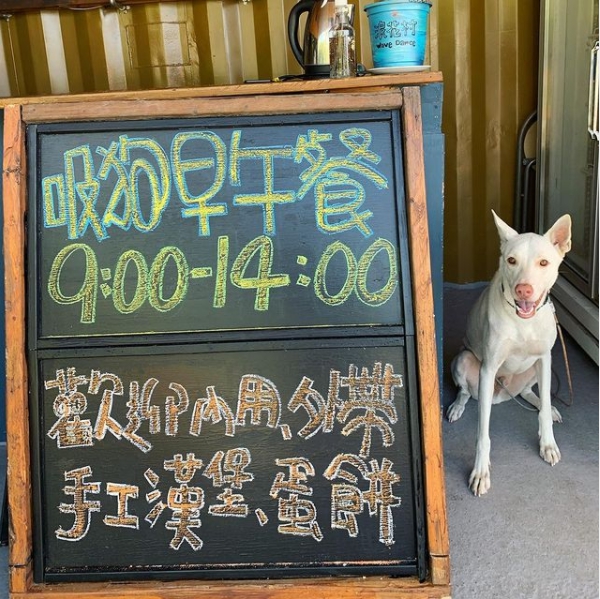 浪花村
WAVE DANCE
吸狗早午餐
9:00-14:00
歡迎內用、外帶
手工漢堡、蛋餅